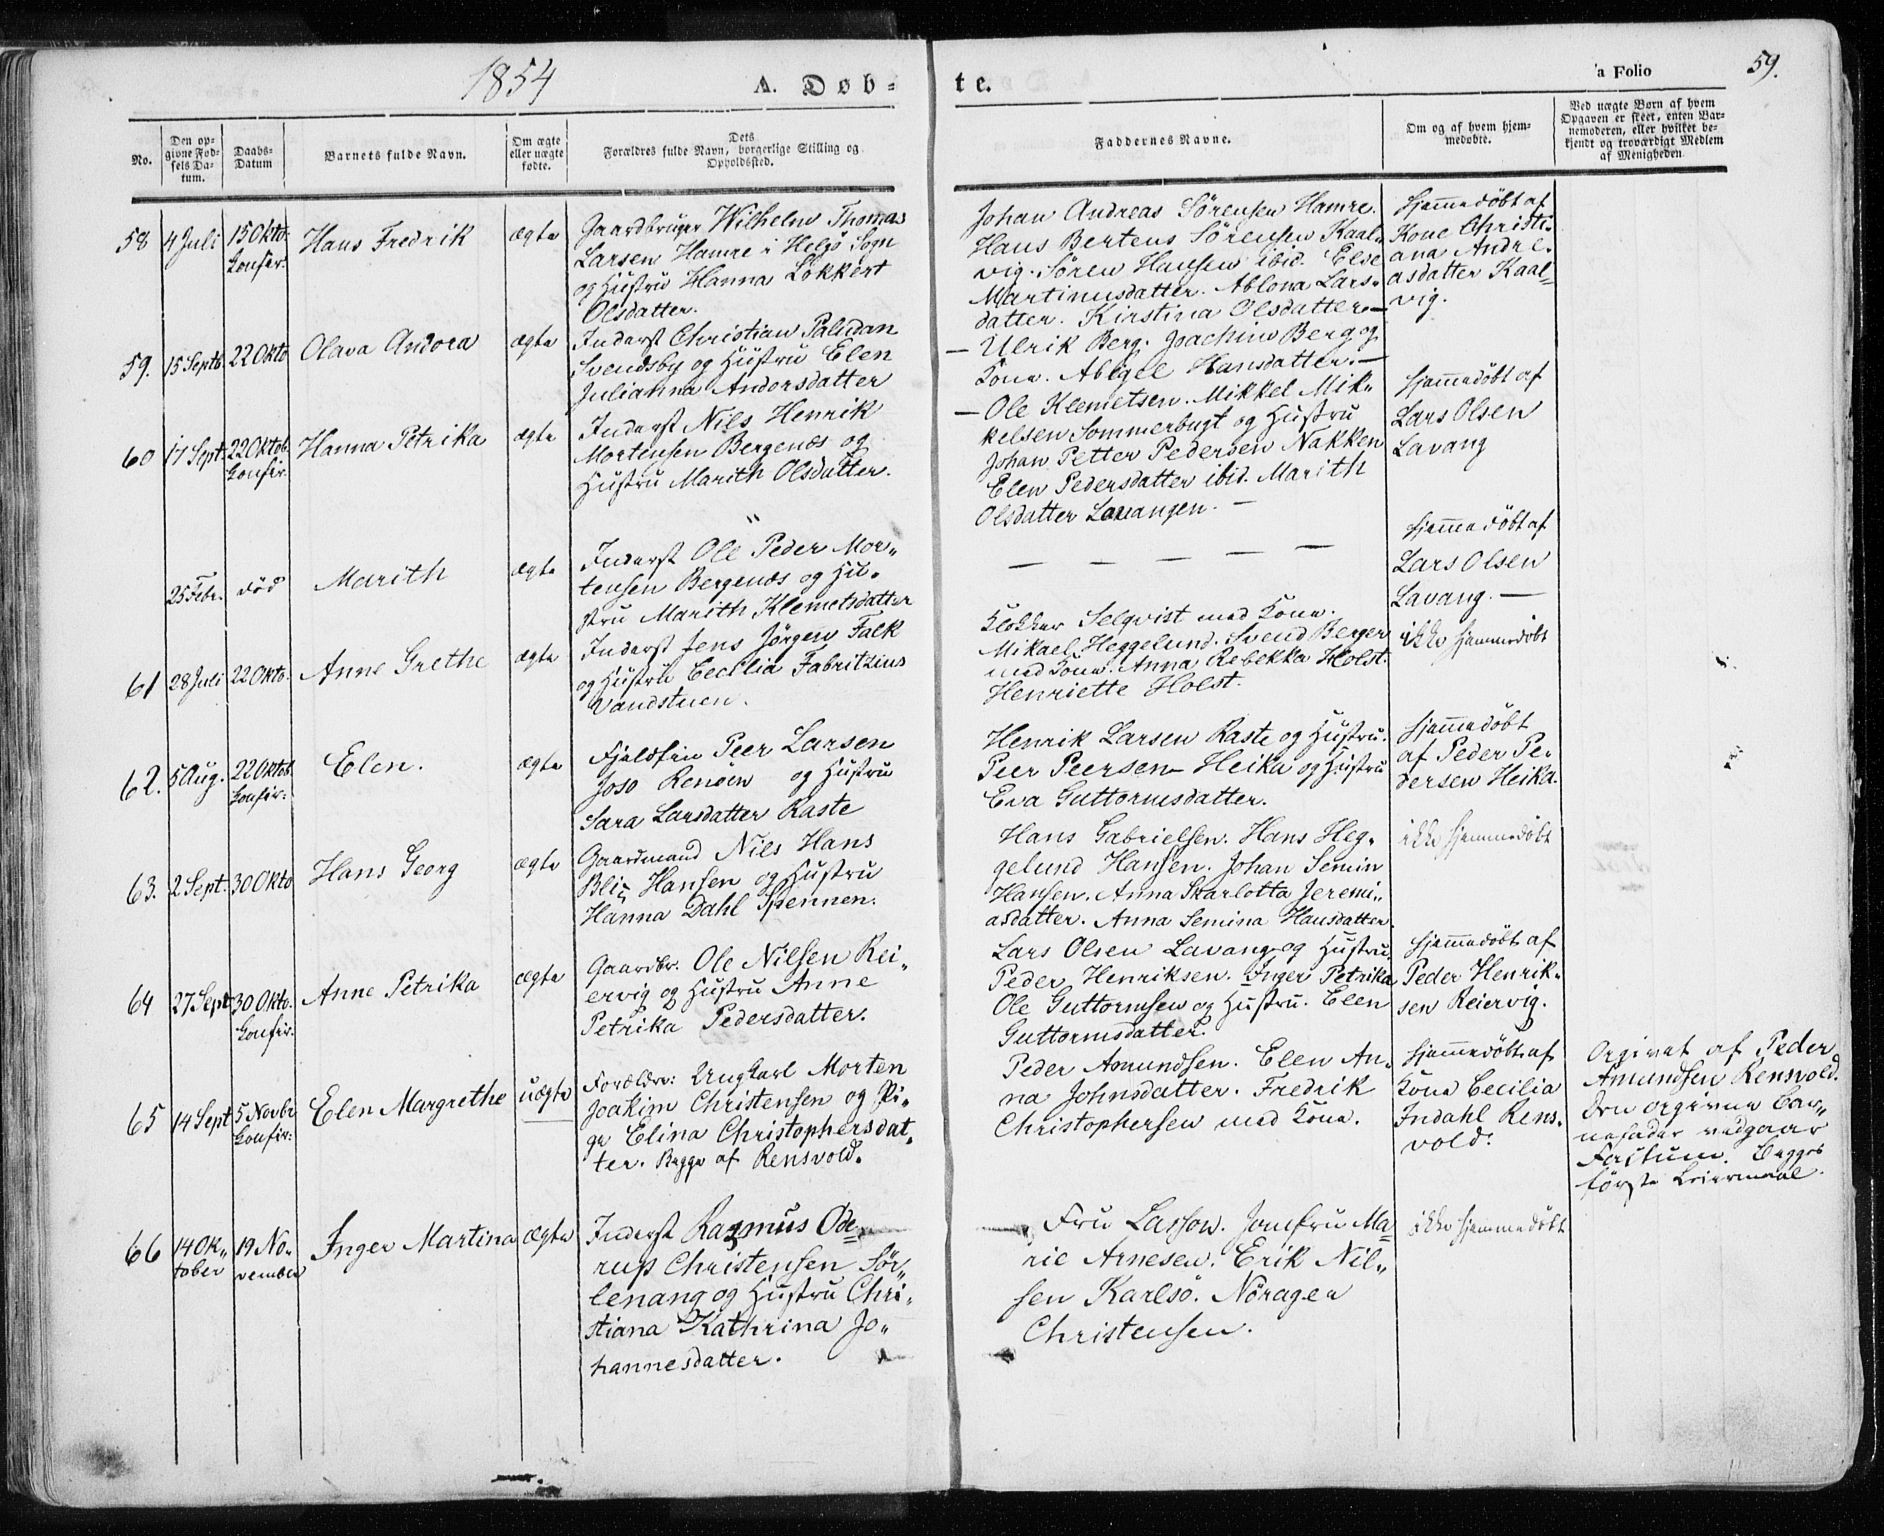 1854
A. Døb-
te.
a Folio
59.
No.
Den op-
givne Fød-
sels Da-
tum.
Daabs-
Datum
Barnets fulde Navn.
Om ægte
eller uægte
fødte.
Dets
Forældres fulde Navn, borgerlige Stilling og
Opholdssted.
Faddernes Navne.
Om og af hvem hjem-
medøbte.
Ved uægte Børn af hvem
Opgaven er skeet, enten Bar-
nemoderen, eller hvilket be-
kjendt og troværdigt Medlem
af Menigheden
58
4 Juli
15 Okto.
Konfir:
Hans Fredrik
ægte
Gaardbruger Wilhelm Thomas
Larsen Hamre i Helgö Sogn
og Hustru Hanna Lökkert
Olsdatter.
Johan Andreas Sörensen Hamre.
Hans Bertens Sörensen Kaal-
vig. Sören Hansen ibid. Else
Martinusdatter. Ablona Lars-
datter. Kirstina Olsdatter.—
Hjemmedöbt af
Kone Christi-
ana Andre-
asdatter Kaal-
vig.
59.
15 Septb.
22 Okto
Olava Andora
ægte
Inderst Christian Paludan
Svendsby og Hustru Elen
Julianna Andersdatter
— Ulrik Berg. Joachim Berg og
Kone. Abigel Hansdatter.—
60
17 Sept.
22 Oktob.
Konfir.
Hanna Petrika
ægte
Inderst Nils Henrik
Mortensen Bergenæs og
Hustru Marith Olsdatter.
— Ole Klemetsen. Mikkel Mik-
kelsen Sommerbugt og Hustru
Johan Petter Pedersen Nakken
Elen Pedersdatter ibid. Marith
Olsdatter Lavangen. —
Hjemmedöbt af
Lars Olsen
Lavang
25 Febr.
död
Marith
ægte
Inderst Ole Peder Mor-
tensen Bergenæs og Hu-
stru Marith Klemetsdatter
— — — —
Hjemmedöbt af
Lars Olsen
Lavang. —
61
28 Juli
22 Okto.
Anne Grethe
ægte
Inderst Jens Jörgen Falk
og Hustru Cecilia Fabritzius
Vandstuen.
Klokker Selqvist med Kone.
Mikael Heggelund. Svend Berger
med Kone. Anna Rebekka Holst.
Henriette Holst.
ikke hjemmedöbt
62.
5 Aug.
22 Oktob.
Konfir:
Elen.
ægte
Fjeldfin Peer Larsen
Joso Renöen og Hustru
Sara Larsdatter Raste
Henrik Larsen Raste og Hustru.
Peer Peersen Heika og Hustru
Eva Guttormsdatter.
Hjemmedöbt
af Peder Pe-
dersen Heika.
63.
2 Sept.
30 Okto
Hans Georg
ægte
Gaardmand Nils Hans
Blix Hansen og Hustru
Hanna Dahl Spennen.
Hans Gabrielsen. Hans Heg-
gelund Hansen. Johan Semin
Hansen. Anna Skarlotta Jeremi-
asdatter. Anna Semina Hansdatter.
ikke hjemmedöbt
64
27 Sept
30 Okto.
Konfir:
Anne Petrika
ægte
Gaardbr. Ole Nilsen Rei-
ervig og Hustru Anne
Petrika Pedersdatter.
Lars Olsen Lavang og Hustru.
Peder Henriksen. Inger Petrika
Ole Guttormsen og Hustru. Elen
Guttormsdatter.
Hjemmedöbt af
Peder Henrik-
sen Reiervig.
65
14 Sept
5 Novbr
Konfir:
Elen Margrethe
uægte
Forældre: Ungkarl Morten
Joakim Christensen og Pi-
ge Elina Christophersdat-
ter. Begge af Rensvold.
Peder Amundsen. Elen An-
na Johnsdatter. Fredrik
Christophersen med Kone.
Hjemmedöbt af
Kone Cecilia
Indahl Rens-
vold.
Opgivet af Peder
Amundsen Rensvold.
Den opgivne Bar-
nefader vedgaar
Factum. Begges
förste Leiermaal.
66
14 Ok-
tober
19 No-
vember
Inger Martina
ægte
Inderst Rasmus Ode-
rup Christensen Sör-
lenang og Hustru Chri-
stiana Kathrina Jo-
hannesdatter.
Fru Lasson. Jomfru Ma-
rie Arnesen. Erik Nil-
sen Karlsö. Nöragen
Christensen.
ikke hjemmedöbt